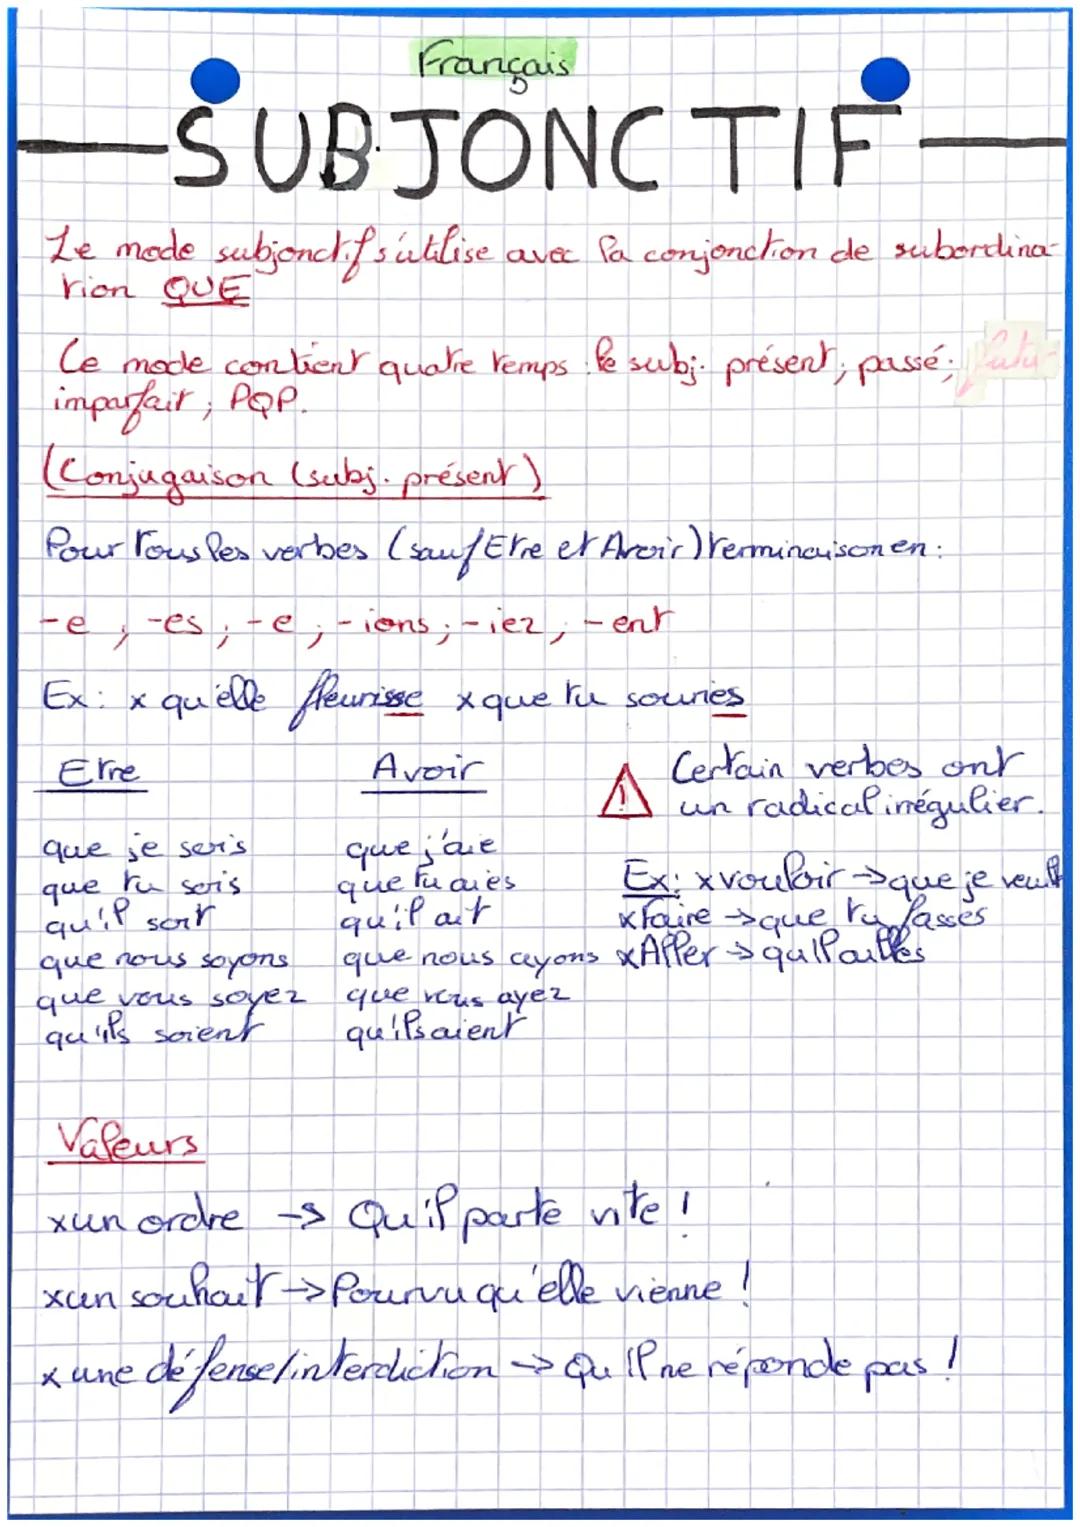 Français
SUBJONCTIF
Le mode subjonctif s'utilise avec la conjonction de subordina-
tion QUE
Ce mode contient quatre temps : le subj. présent ; passé ;
imparfait ; PQP.
(Conjugaison (subj. présent)
Pour tous les verbes (sauf Etre et Avoir) terminaison en :
-e ; -es ; -e ; -ions ; -iez ; -ent
Ex : x qu'elle fleurisse x que tu souries
Etre
Avoir
Certain verbes ont
un radical irrégulier.
que je sois
que tu sois
qu'il soit
que nous soyons
que vous soyez
qu'ils soient
que j'aie
que tu aies
qu'il ait
que nous ayons
que vous ayez
qu'ils aient
Ex : x vouloir → que je
x Faire → que tu fasses
x Aller → qu'il ailles
Valeurs
x un ordre → Qu'il parte vite !
x un souhait → Pourvu qu'elle vienne !
x une défense/interdiction → Qu'il ne réponde pas !